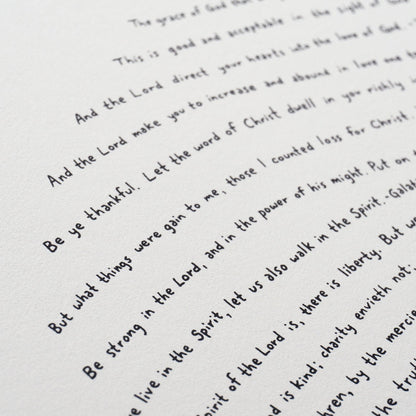 The grace of God that
This is good and acceptable in the sight of
And the Lord direct your hearts into the love of God
And the Lord make you to increase and abound in love one
Be ye thankful. Let the word of Christ dwell in you richly
But what things were gain to me, those I counted loss for Christ.
Be strong in the Lord, and in the power of his might. Put on
live in the Spirit, let us also walk in the Spirit.-Galat
Spirit of the Lord is, there is liberty. But w
is kind; charity envieth not;
by the mercie
the trut